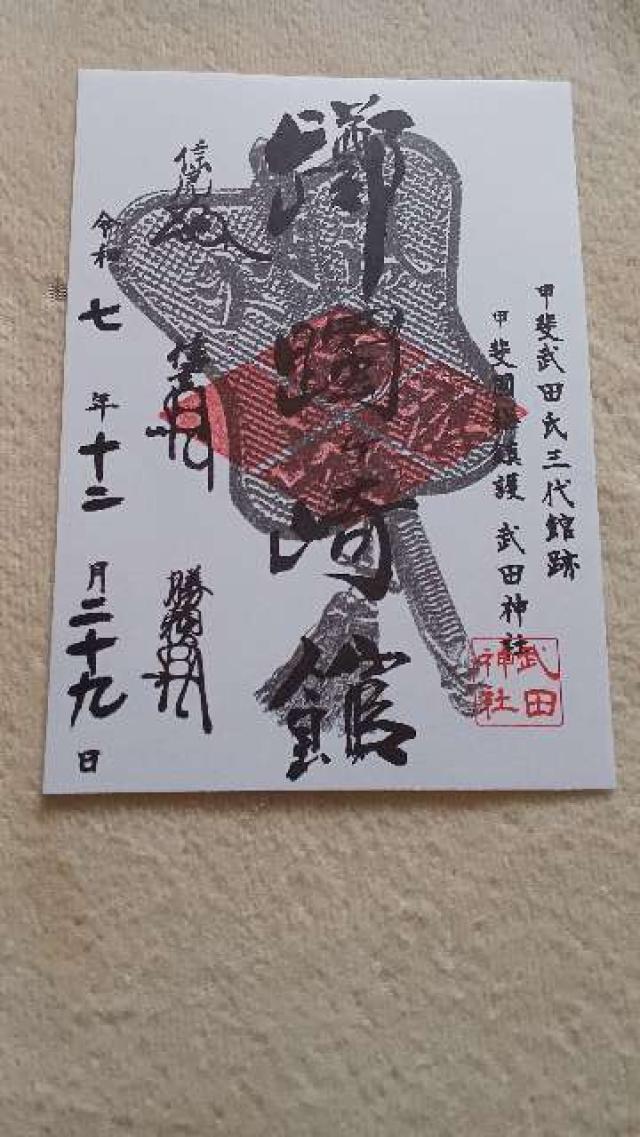 甲斐武田氏三代館跡
甲斐國 鎮護 武田神社
武田
神社
躑躅ヶ崎館
信虎
信玄
勝頼
令和七年十二月二十九日